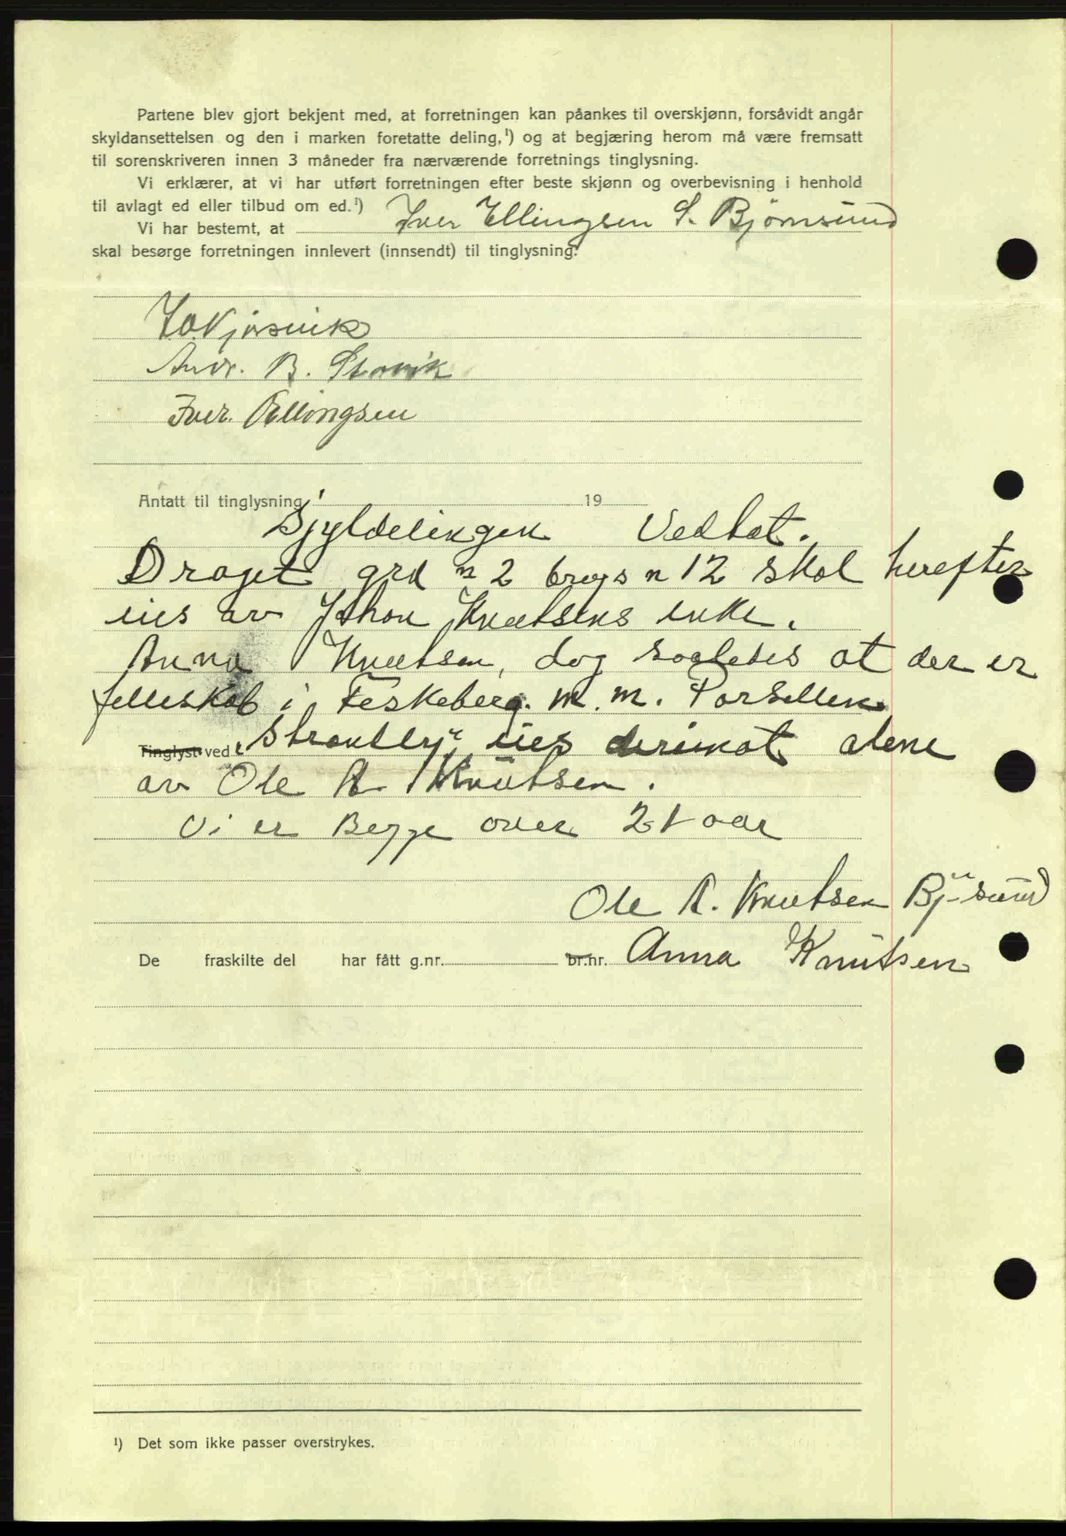 Partene blev gjort bekjent med, at forretningen kan påankes til overskjønn, forsåvidt angår
skyldansettelsen og den i marken foretatte deling,¹) og at begjæring herom må være fremsatt
til sorenskriveren innen 3 måneder fra nærværende forretnings tinglysning.
Vi erklærer, at vi har utført forretningen efter beste skjønn og overbevisning i henhold
til avlagt ed eller tilbud om ed.¹)
Vi har bestemt, at Iver Ellingsen S. Bjørnsund
skal besørge forretningen innlevert (innsendt) til tinglysning.
Andr. B. Stavik
Iver Ellingsen
Antatt til tinglysning 19
Sjyldelingen Vedtat.
Draget grd n 2 brugs n 12 skal herefter
eies av Johan Knutsens enke.
Anna Knutsen, dog saaledes at der er
felleskab i Feskeberg. m. m. Parsellen
Tinglyst ved „Strandly" eies derimot alene
av Ole A. Knutsen.
Vi er Begge over 21 aar
Ole A. Knutsen Bj-sund
De fraskilte del har fått g.nr. br.nr. Anna Knutsen
¹) Det som ikke passer overstrykes.